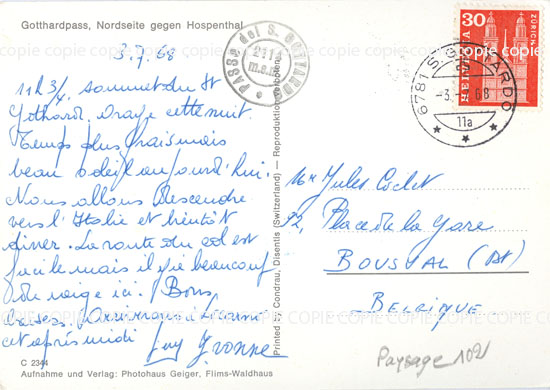 Gotthardpass, Nordseite gegen Hospenthal
3.7.68
11h 3/4 sommet du St
Gothard. Orage cette nuit
Temps plus frais mais
beau soleil aujourd'hui.
Nous allons descendre
vers l'Italie et bientôt
dîner. La route du col est
facile mais il y a beaucoup
de neige ici. Bons
baisers. Arriverons à Locarno
cet après midi Guy Yvonne
C 2344
Aufnahme und Verlag: Photohaus Geiger, Flims-Waldhaus
Printed by Condrau, Disentis (Switzerland) — Reproduktion verboten
PASSO del S. GOTTARDO
2114
m.s.m.
30
HELVETIA
ZÜRICH
6781 S. GOTTARDO
-3.-7.68
11a
Mr Jules
92, Place de la Gare
BOUSVAL (Bt)
BELGIQUE
Paysage 1021
COPIE COPIE COPIE COPIE